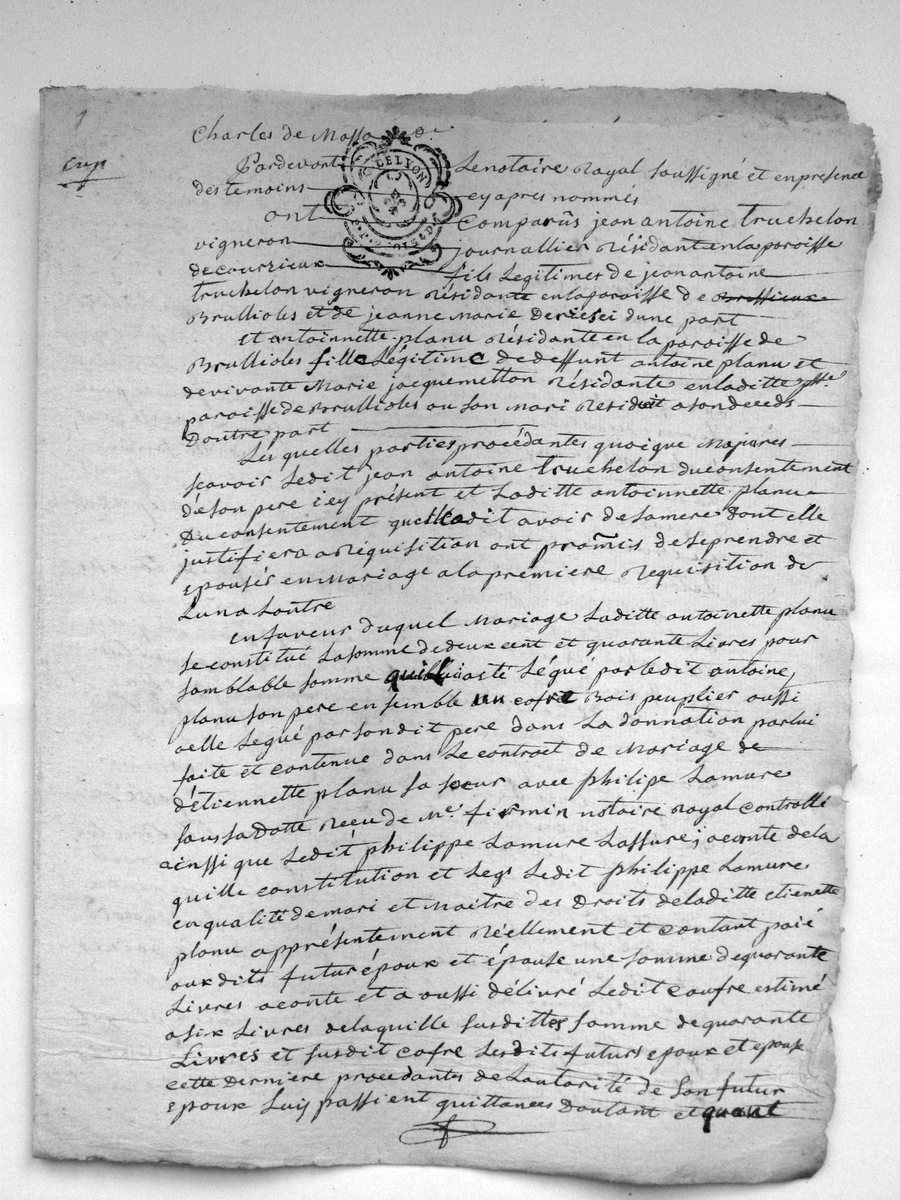 1
Charles de Masso
Pardevant Le notaire Royal Soussigné et en presence
des temoins cy apres nommés
ont Comparûs jean antoine truchelon
vigneron journallier résidant en la paroisse
de courzieux fils Legitimes de jean antoine
truchelon vigneron résidante en la paroisse de Brussieux
Brullioles et de jeanne Marie d'une part
et antoinnette planu résidante en la paroisse de
Brullioles fille Légitime de deffunt antoine planu et
de vivante Marie jacquemetton résidante en laditte
paroisse de Brullioles ou son mari residoit a son décéds
Doutre part
Les quelles parties procédantes quoique Majeures
scavoir Ledit jean antoine truchelon du consentement
de son pere icy présent et Laditte antoinnette planu
Du consentement quelle a dit avoir de sa mere dont elle
justifiera a Réquisition ont promis de se prendre et
epouser en Mariage a la premiere Requisition de
Lun a Lautre
en faveur duquel Mariage Laditte antoinette planu
se constitue La somme de deux cent et quarante Livres pour
samblable somme qui lui a esté Légué par ledit antoine
planu son pere ensemble un cofre Bois peuplier aussi
a elle Legué par sondit pere dans La donnation par lui
faite et contenue dans Le contract de Mariage de
d'étiennette planu sa soeur avec philipe Lamure
sous sa Datte Recu de Me. firmin notaire Royal controllé
ainssi que Ledit philippe Lamure Lassure; a conte de la
quille constitution et Legs Ledit philippe Lamure
en qualité de mari et Maitre des Droits de laditte etienette
planu a pprésentement Réellement et contant paié
aux dits futur époux et épouse une somme de quarante
Livres a conte et a aussi délivré Ledit coufre estimé
a six Livres de laquille susditte somme de quarante
Livres et susdit cofre Lesdits futurs epoux et epouse
cette Derniere procedantes de Lautorité de Son futur
epoux Luy passient quittances Dautant et quant